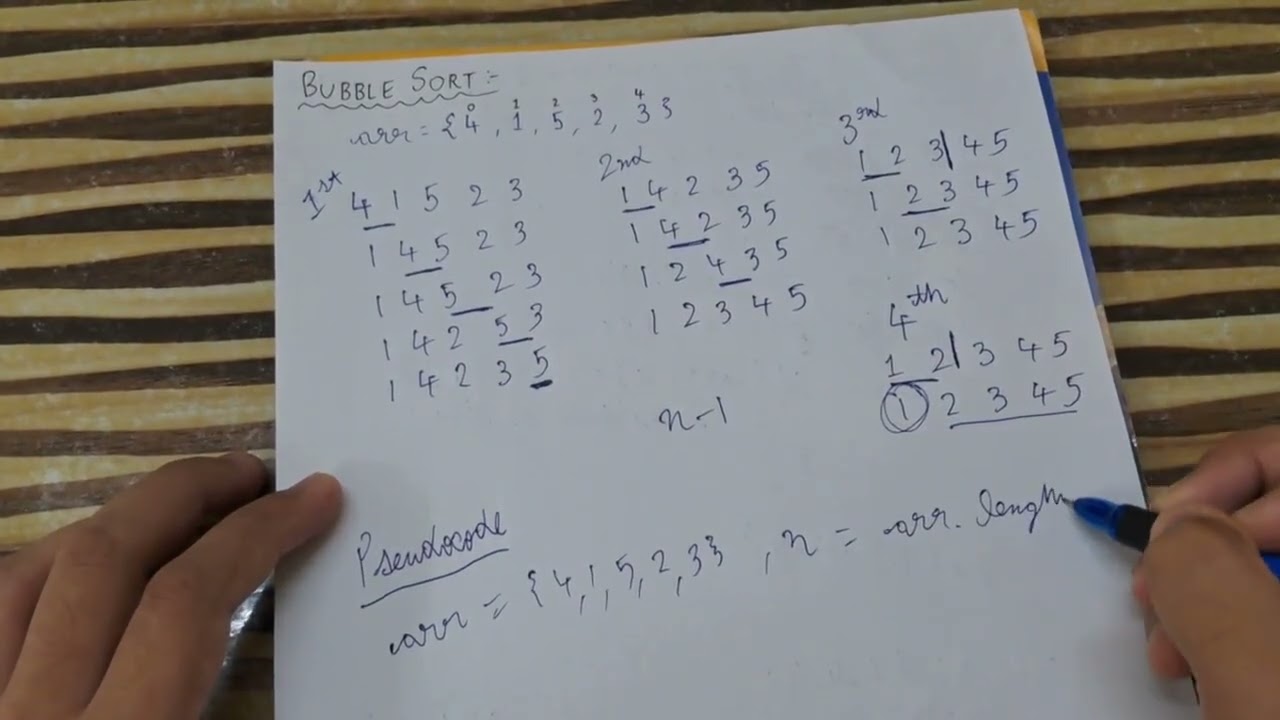 BUBBLE SORT:-
0 1 2 3 4
arr = {4, 1, 5, 2, 3}
1st
4 1 5 2 3
1 4 5 2 3
1 4 5 2 3
1 4 2 5 3
1 4 2 3 5
2nd
1 4 2 3 5
1 4 2 3 5
1 2 4 3 5
1 2 3 4 5
n-1
3rd
1 2 3| 4 5
1 2 3 4 5
1 2 3 4 5
4th
1 2| 3 4 5
1 2 3 4 5
Pseudocode
arr = {4,1,5,2,3} , n = arr. length